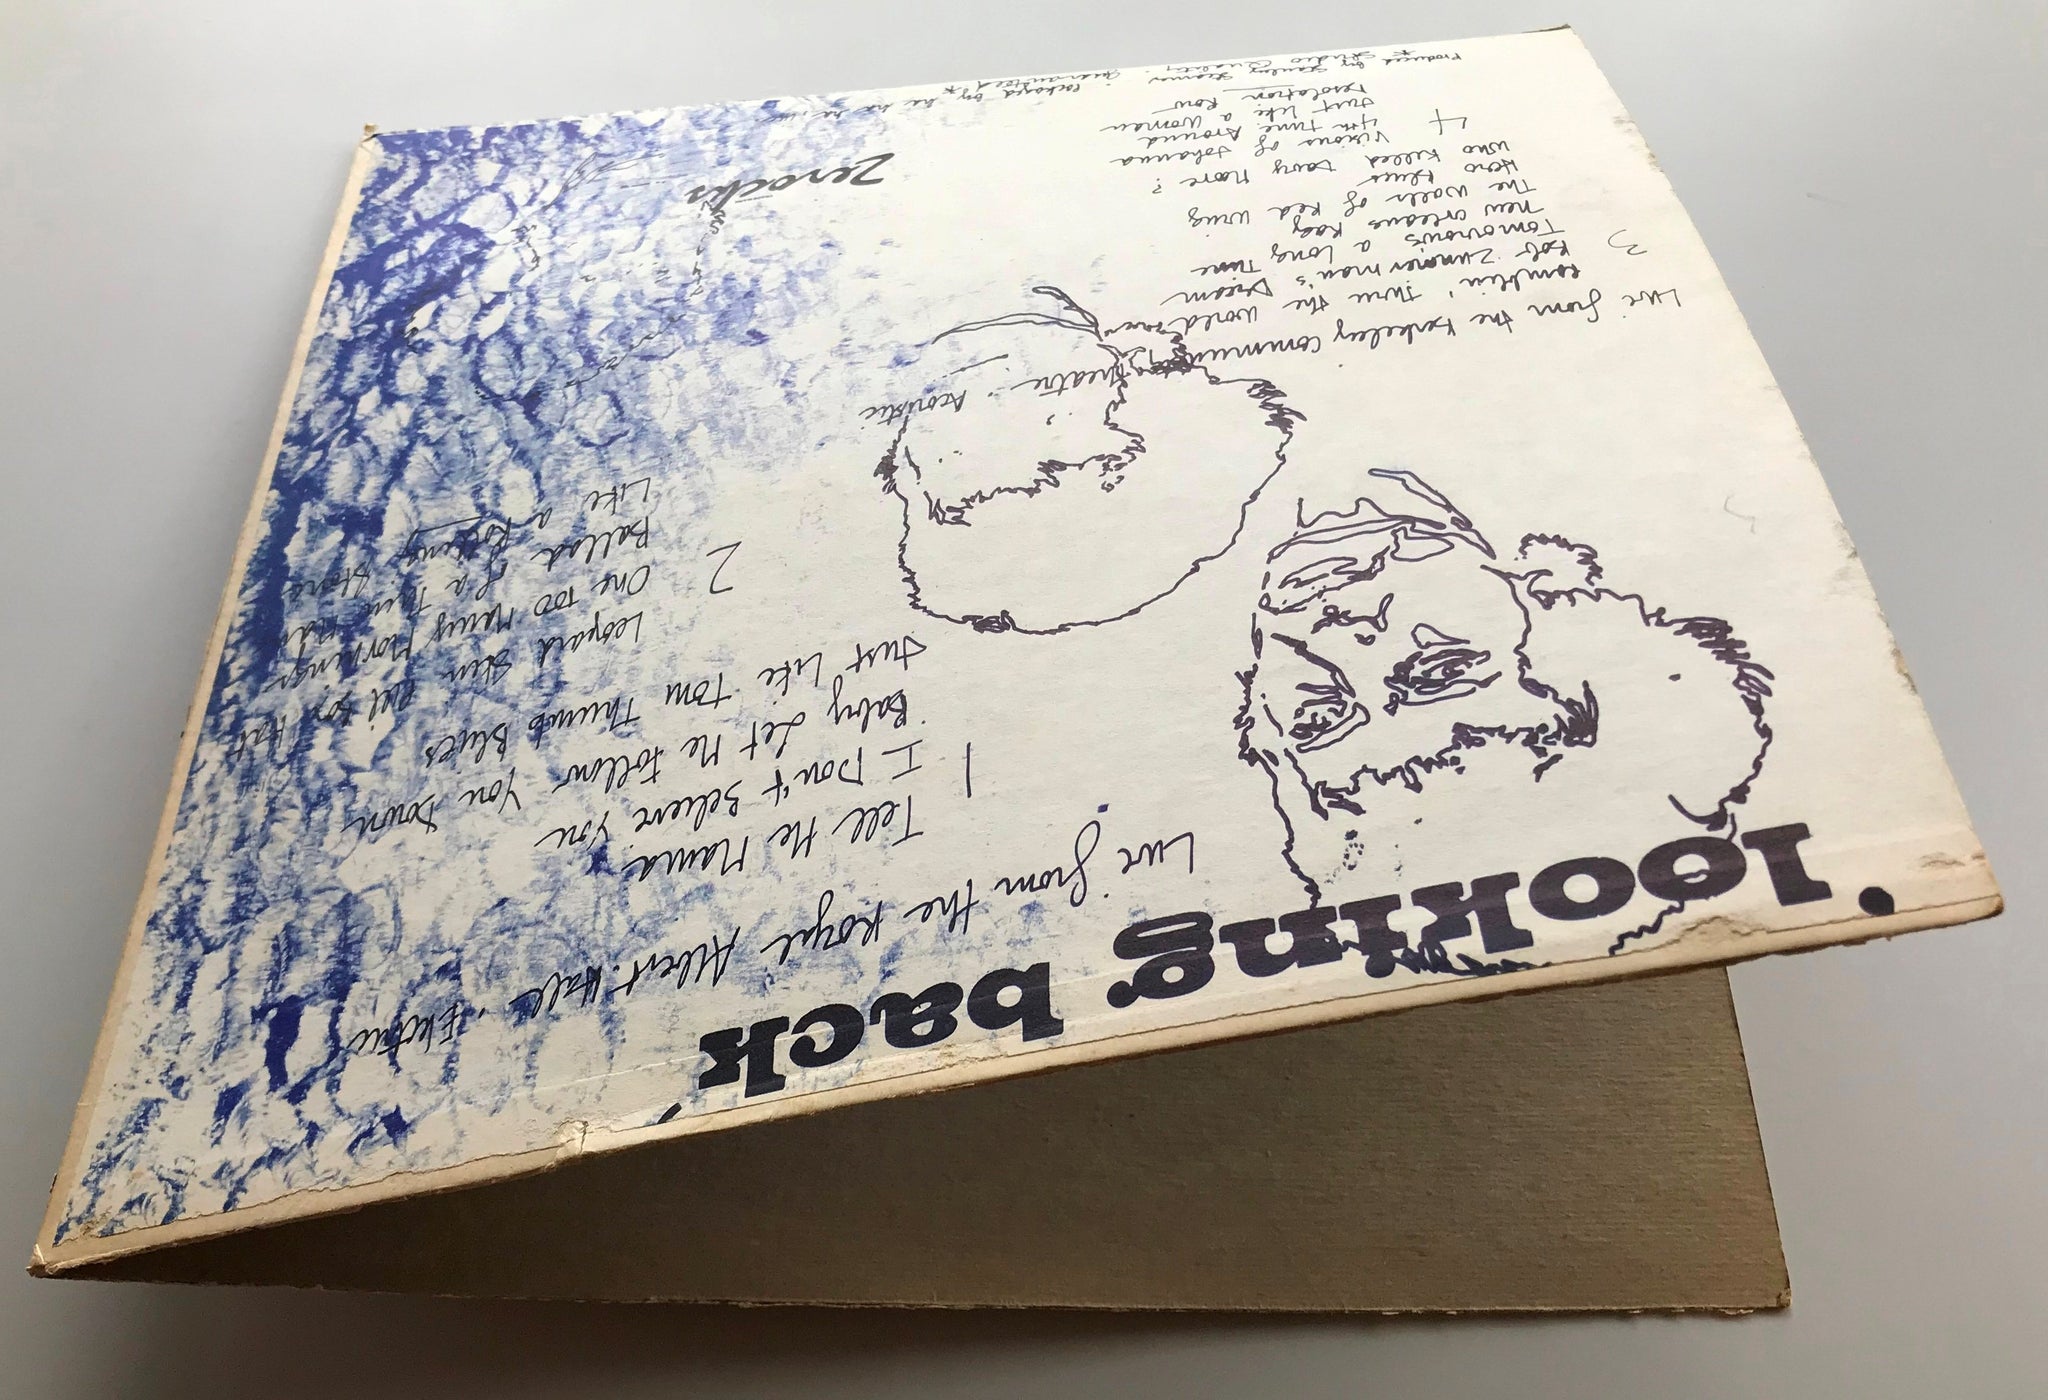 'looking back'
Live from the Royal Albert Hall. Electric
1
Tell Me Mama
I Don't Believe You
Baby Let Me Follow You Down
Just Like Tom Thumb Blues
2
Leopard Skin Pill Box Hat
One Too Many Mornings
Ballad of a Thin Man
Like a Rolling Stone
Live from the Berkeley Community Theatre. Acoustic
3
Ramblin' Thru the World
Bob Zimmerman's Dream
Tomorrow's a Long Time
New Orleans Rag
The Walls of Red Wing
Hero Blues
Who Killed Davy Moore?
4
Visions of Johanna
4th Time Around
Just Like a Woman
Desolation Row
Produced by
* Studio Quality Guaranteed *
Zerocks